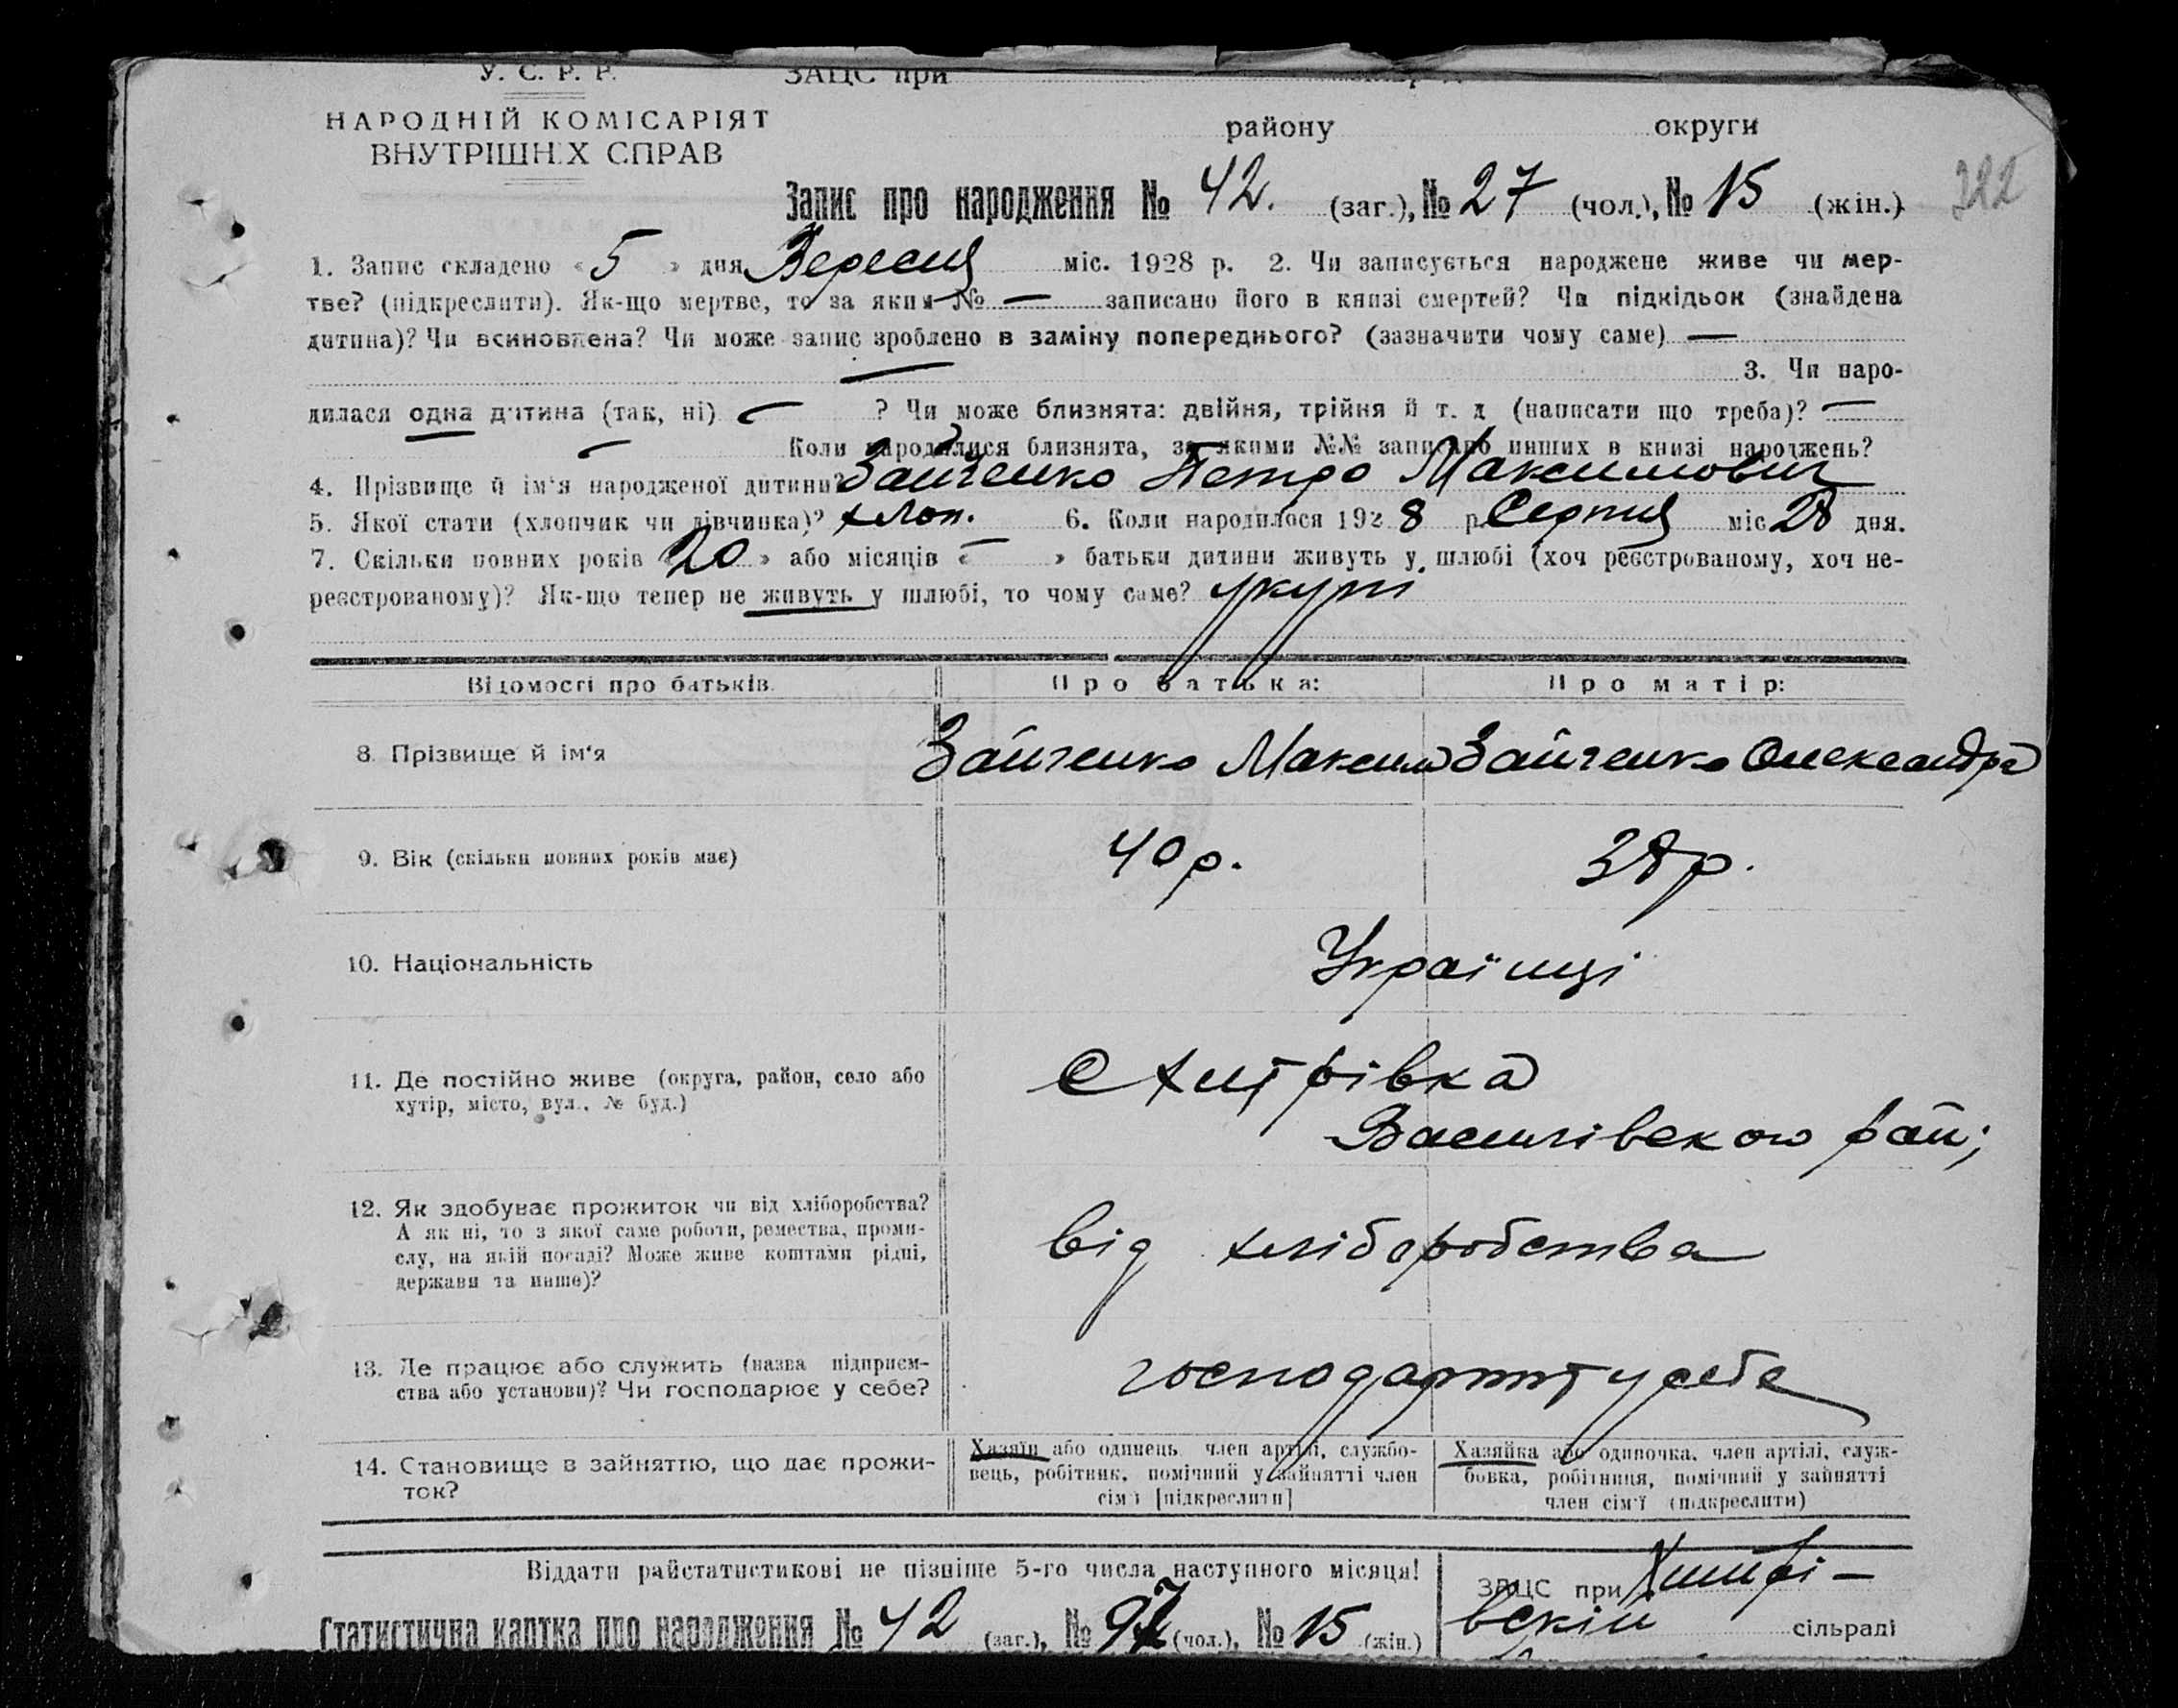 У. С. Р. Р.
ЗАЦС при
НАРОДНІЙ КОМІСАРІЯТ
ВНУТРІШНІХ СПРАВ
району округи
Запис про народження № 42. (заг.), № 27 (чол.), № 15 (жін.)
322
1. Запис складено « 5 » дня Вересня міс. 1928 р. 2. Чи записується народжене живе чи мер-
тве? (підкреслити). Як-що мертве, то за яким № — записано його в книзі смертей? Чи підкідьок (знайдена
дитина)? Чи всиновлена? Чи може запис зроблено в заміну попереднього? (зазначити чому саме) —
— 3. Чи наро-
дилася одна дитина (так, ні) — ? Чи може близнята: двійня, трійня й т. д (написати що треба)? —
— Коли народилися близнята, за якими №№ записано инших в книзі народжень?
4. Прізвище й ім'я народженої дитини? Зайченко Петро Максимович
5. Якої стати (хлопчик чи дівчинка)? хлоп. 6. Коли народилося 1928 р. Серпня міс 28 дня.
7. Скільки повних років « 20 » або місяців « — » батьки дитини живуть у шлюбі (хоч реєстрованому, хоч не-
реєстрованому)? Як-що тепер не живуть у шлюбі, то чому саме? укупі
Відомості про батьків Про батька: Про матір:
8. Прізвище й ім'я Зайченко Максим Зайченко Олександра
9. Вік (скільки повних років має) 40 р. 38 р.
10. Національність Українці
11. Де постійно живе (округа, район, село або
хутір, місто, вул., № буд.)
с
Василівского рай;
12. Як здобуває прожиток чи від хліборобства?
А як ні, то з якої саме роботи, ремества, проми-
слу, на якій посаді? Може живе коштами рідні,
держави та инше)?
від хліборобства
13. Де працює або служить (назва підприєм-
ства або установи)? Чи господарює у себе?
у себе
14. Становище в зайняттю, що дає прожи-
ток?
Хазяїн або одинець член артілі, службо-
вець, робітник, помічний у зайнятті член
сім'ї [підкреслити]
Хазяйка або одиночка, член артілі, служ-
бовка, робітниця, помічний у зайнятті
член сім'ї (підкреслити)
Віддати райстатистикові не пізніше 5-го числа наступного місяця!
ЗАЦС при
вскій сільраді
Статистична картка про народження № 42 (заг.), № (чол.), № 15 (жін.)